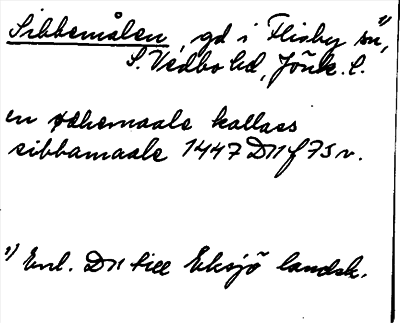 Sibbemålen, gd i Flisby sn¹⁾,
S. Vedbo hd, Jönk. l.
en øдhemaale kallass
sibbamaale 1447 DN f 75 v.
¹⁾ Enl. DN till Eksjö landsk.